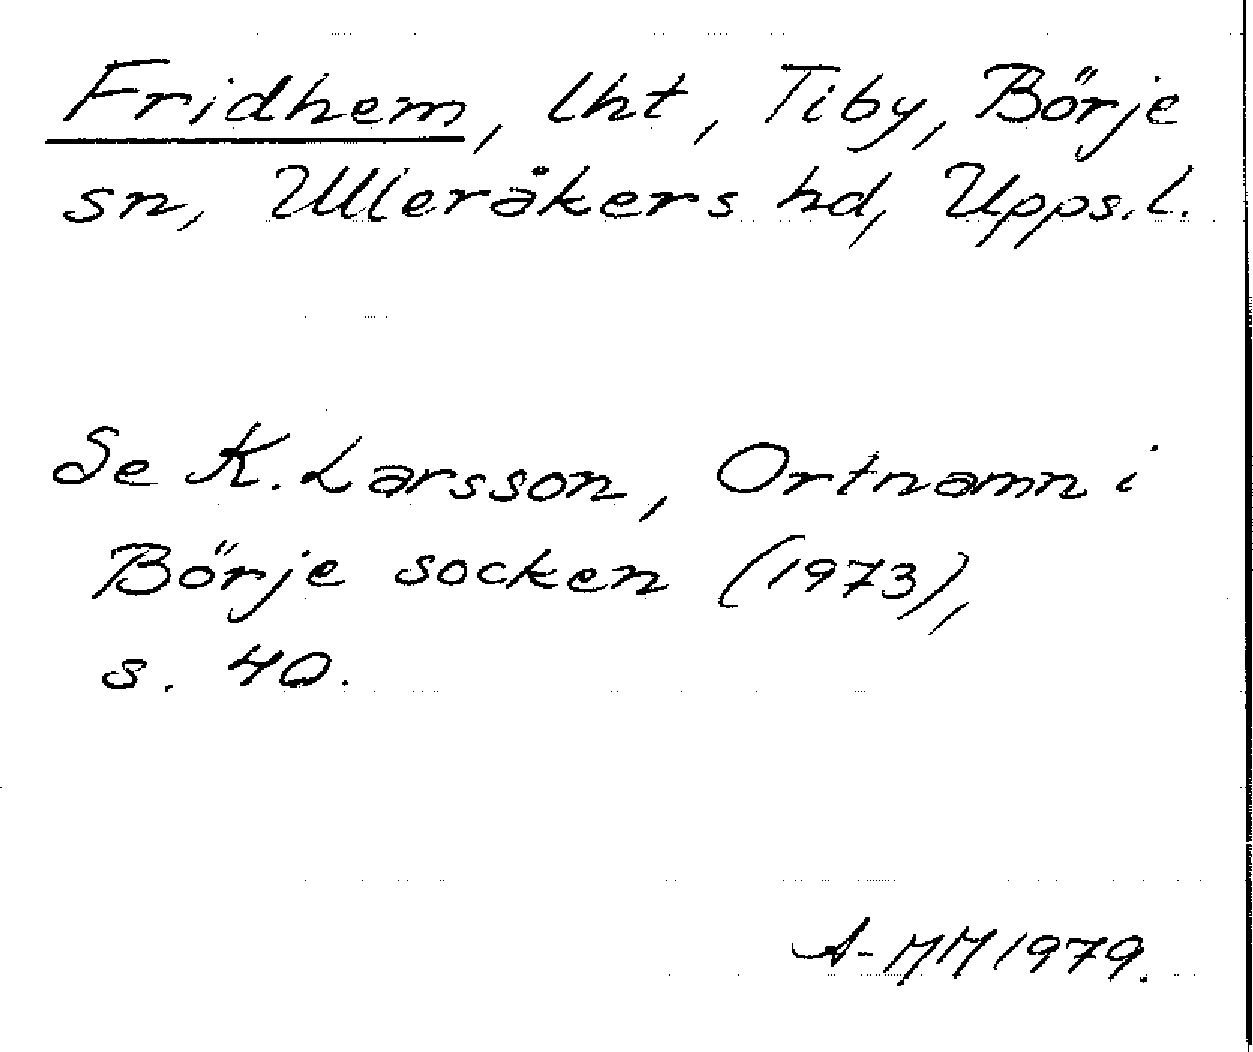 Fridhem, lht, Tiby, Börje
sn, Ulleråkers hd, Upps. l.
Se K. Larsson, Ortnamn i
Börje socken (1973),
s. 40.
A-MM 1979.